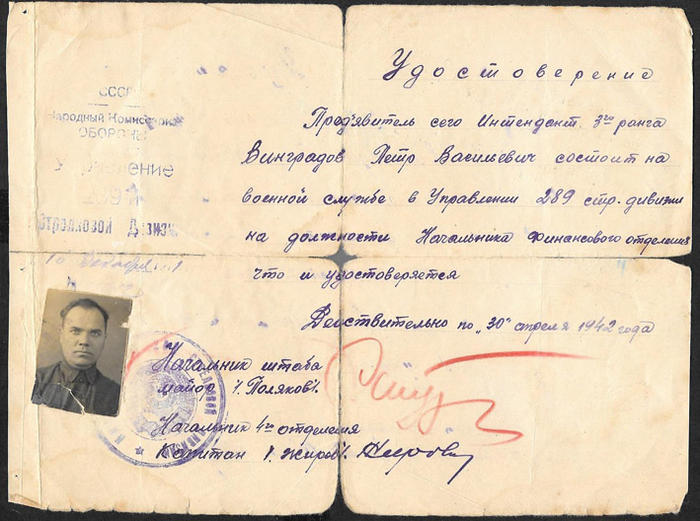 СССР
Народный Комиссариат
ОБОРОНЫ
Управление
Стрелковой Дивизи
10 декабря
Удостоверение
Предъявитель сего Интендант 3го ранга
Винградов Петр Васильевич состоит на
военной службе в Управлении 289 стр. дивизии
на должности Начальника Финансового отделения
что и удостоверяется
Действительно по „30" апреля 1942 года
Начальник штаба
майор /Поляков/.
Начальник 4го отделения
Капитан /Жиров/.